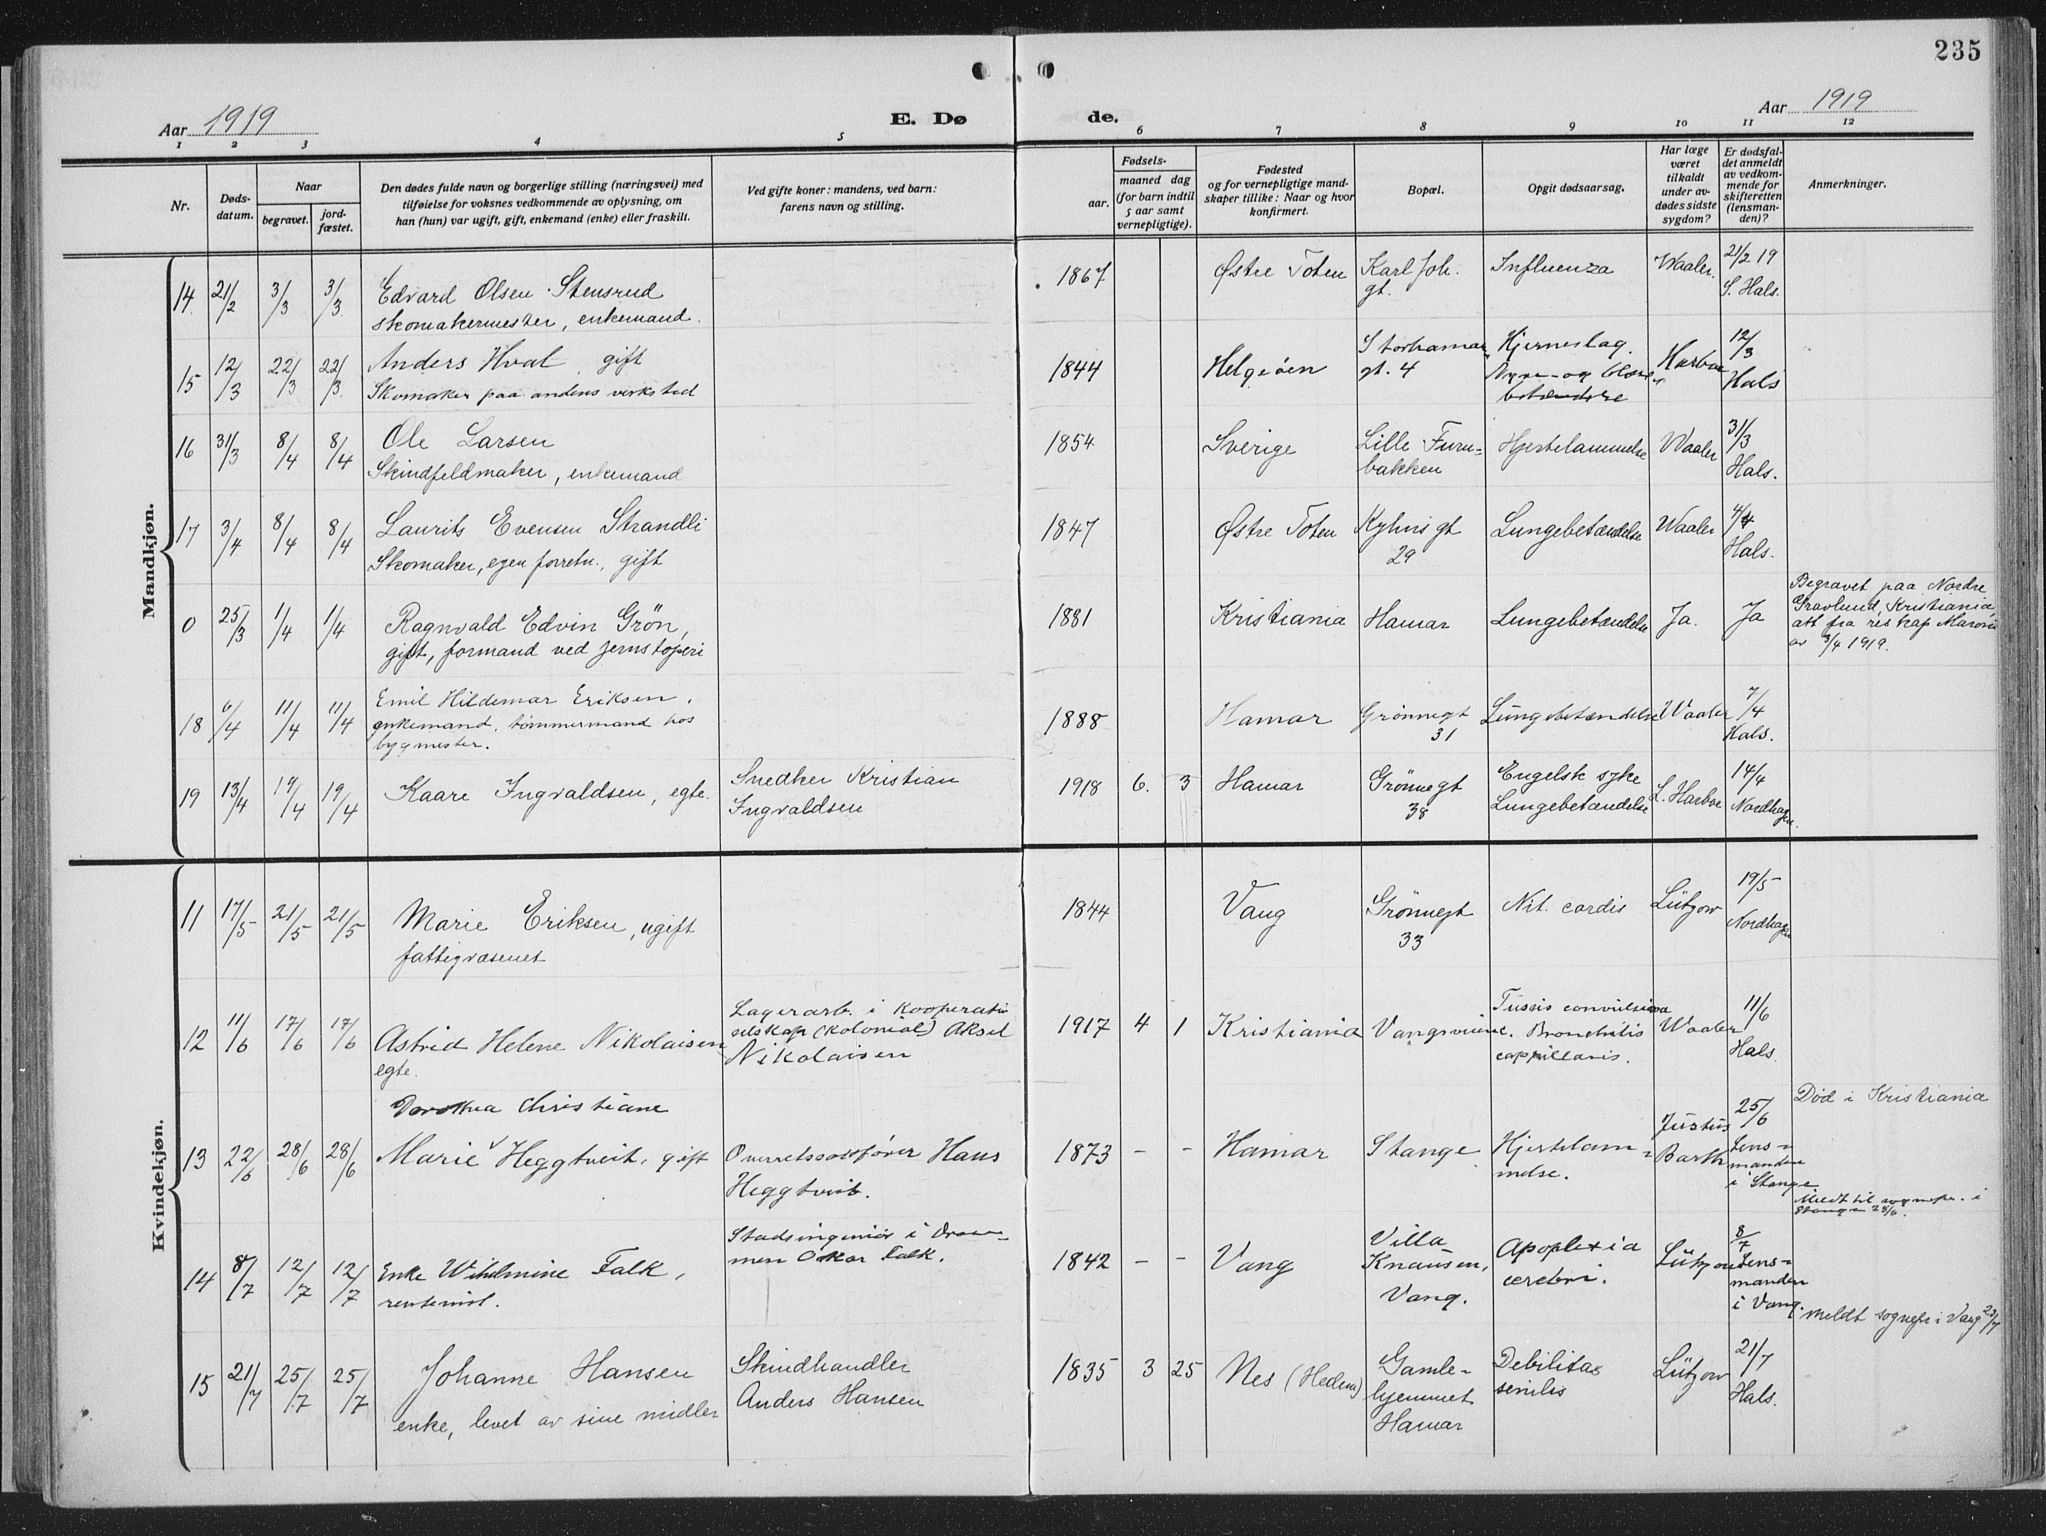 235
Aar 1919
E. Dø
de.
Aar 1919
1 2 3 4 5 6 7 8 9 10 11 12
Nr.
Døds-
datum.
Naar
begravet.
jord-
fæstet.
Den dødes fulde navn og borgerlige stilling (næringsvei) med
tilføielse for voksnes vedkommende av oplysning, om
han (hun) var ugift, gift, enkemand (enke) eller fraskilt.
Ved gifte koner: mandens, ved barn:
farens navn og stilling.
Fødsels-
aar.
maaned dag
(for barn indtil
5 aar samt
vernepligtige).
Fødested
og for vernepligtige mand-
skaper tillike: Naar og hvor
konfirmert.
Bopæl.
Opgit dødsaarsag.
Har læge
været
tilkaldt
under av-
dødes sidste
sygdom?
Er dødsfal-
det anmeldt
av vedkom-
mende for
skifteretten
(lensman-
den)?
Anmerkninger.
Mandkjøn.
14 21/2 3/3 3/3
Edvard Olsen Stensrud
skomakermester, enkemand.
1867
Østre Toten
Karl Joh.
gt.
Influenza
Waaler.
21/2 19
S. Hals.
15 12/3 22/3 22/3
Anders Hval, gift
Skomaker paa andens verksted
1844
Helgøen
Storhamar
gt. 4
Hjerneslag.
Nyre- og blære-
betændelse
Harboe
12/3
Hals
16 31/3 8/4 8/4
Ole Larsen
Skindfeldmaker, enkemand
1854
Sverige
Lille Furu-
bakken
Hjertelammelse
Waaler
31/3
Hals.
17 3/4 8/4 8/4
Laurits Evensen Strandli
Skomaker, egen forretn., gift
1847
Østre Toten
Kyhns gt
29
Lungebetændelse
Waaler
4/4
Hals.
0 25/3 1/4 1/4
Ragnvald Edvin Grön,
gift, formand ved jernstøperi
1881
Kristiania
Hamar
Lungebetændelse
Ja.
Ja
Begravet paa Nordre
Gravlund, Kristiania,
att fra res kap
av 3/4 1919.
18 6/4 11/4 11/4
Emil Hildemar Eriksen,
enkemand, tømmermand hos
bygmester.
1888
Hamar
Grønnegt
31
Lungebetændelse
Waaler
7/4
Hals.
19 13/4 19/4 19/4
Kaare Ingvaldsen, egte.
Snedker Kristian
Ingvaldsen
1918 6. 3
Hamar
Grønnegt
38
Engelsk syke
Lungebetændelse
L. Harboe
14/4
Nordhagen.
Kvindekjøn.
11 17/5 21/5 21/5
Marie Eriksen, ugift
fattigvæsenet
1844
Vang
Grønnegt
33
Vit. cordis
Lützow
19/5
Nordhagen
12 11/6 17/6 17/6
Astrid Helene Nikolaisen
egte.
Lagerarb. i Kooperativ
selskap (Kolonial) Aksel
Nikolaisen
1917 4 1
Kristiania
Vangsveien
Tussis convulsiva
c. Bronchitis
cappillaris.
Waaler
11/6
Hals.
13 22/6 28/6 28/6
Dorothea Christiane
Marie Heggtveit, gift
Overretssakfører Hans
Heggtveit.
1873 - -
Hamar
Stange
Hjertelam-
melse.
Justus
Barth
25/6
Lens-
manden
i Stange
Død i Kristiania
Meldt til sognepr. i
Stange 28/6.
14 8/7 12/7 12/7
Enke Wilhelmine Falk,
renteinst.
Stadsingeniør i Dram-
men Oskar Falk.
1842 - -
Vang
Villa
Knausen,
Vang.
Apoplexia
cerebri.
Lützow
8/7
Lens-
manden
i Vang.
Meldt sognepr i Vang 23/7
15 21/7 25/7 25/7
Johanne Hansen
enke, levet av sine midler
Skindhandler
Anders Hansen
1835 3 25
Nes (Hedem)
Gamle-
hjemmet
Hamar
Debilitas
senilis
Lützow
21/7
Hals.